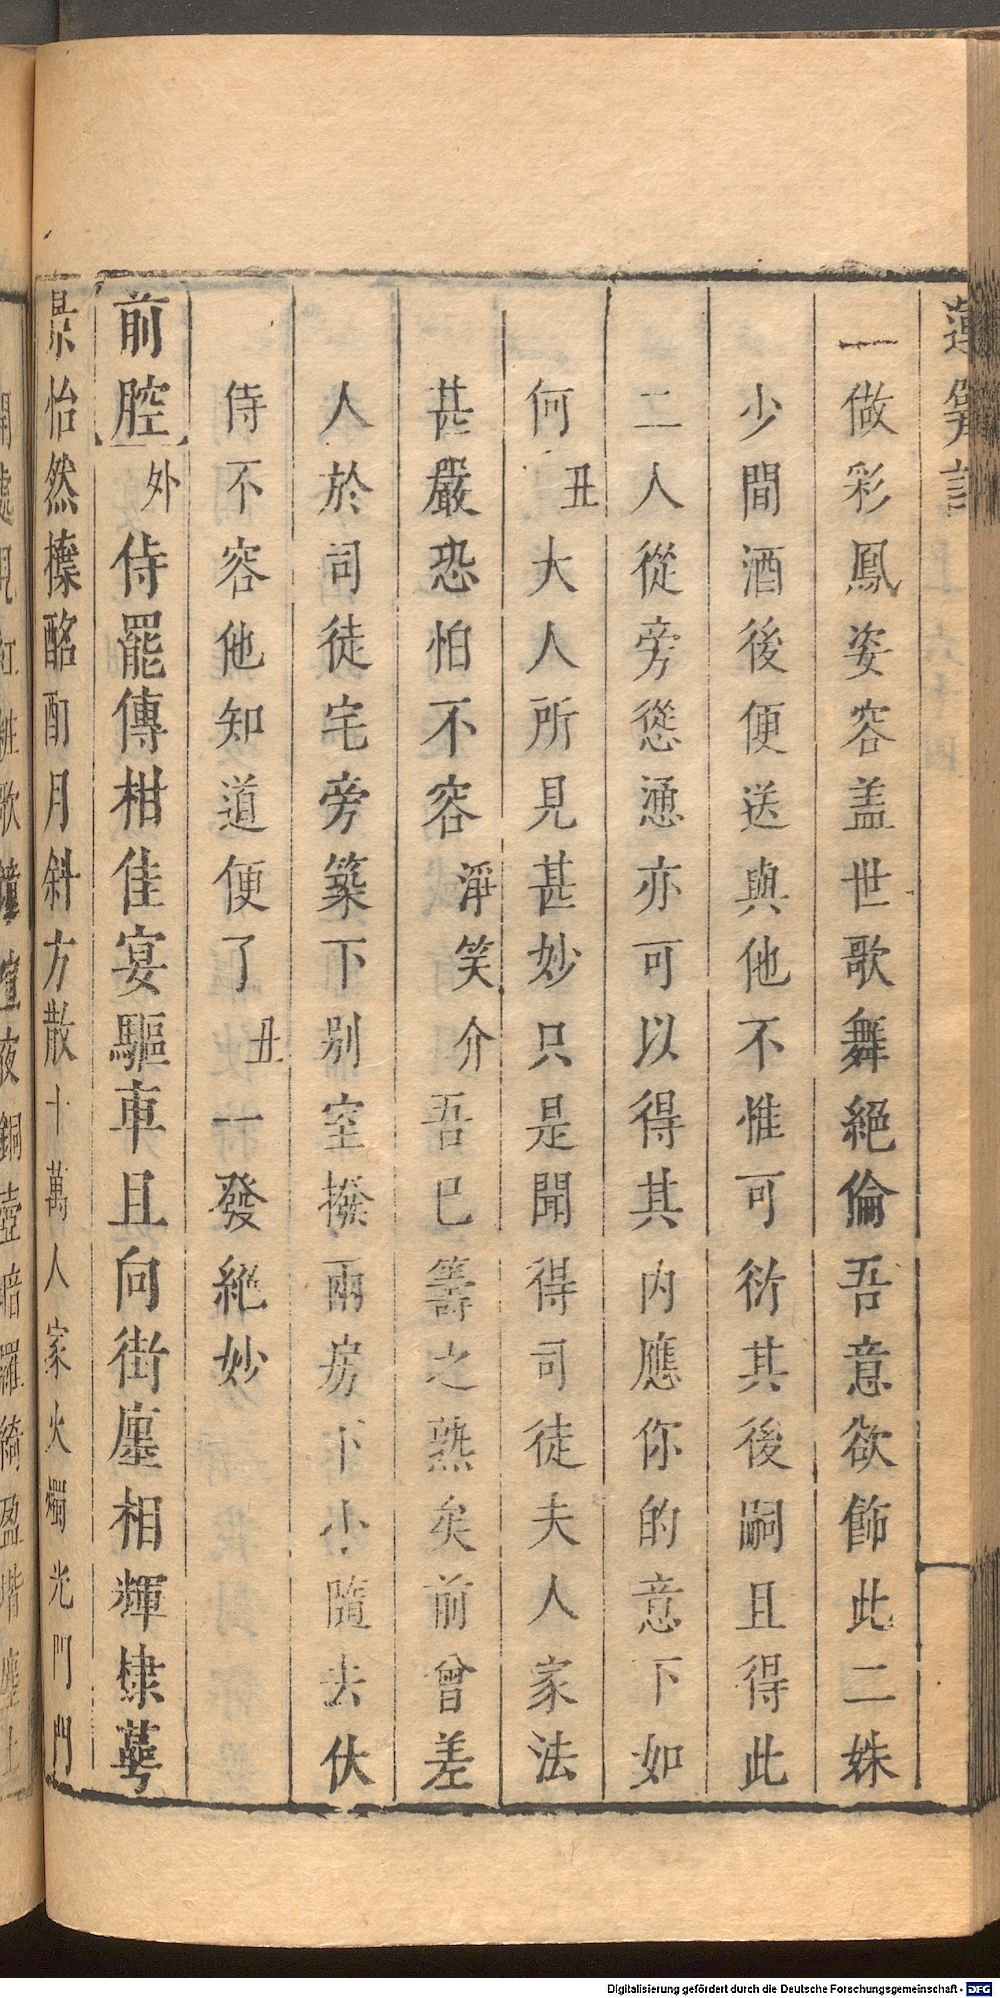 一做彩鳳姿容盖世歌舞絕倫吾意欲飾此二姝
少間酒後便送與他不惟可衍其後嗣且得此
二人從旁慫慂亦可以得其内應你的意下如
何丑大人所見甚妙只是聞得司徒夫人家法
甚嚴恐怕不容淨笑介吾已籌之熟矣前曾差
人於司徒宅旁築下别室撥兩房下小隨去伏
侍不容他知道便了丑一發絕妙
前腔外侍罷傳柑佳宴驅車且向街塵相輝棣萼
景怡然㰖酩酊月斜方散十萬人家火燭光門門
開處見紅粧歌鐘喧夜銅壺暗羅綺盈堦塵上
Digitalisierung gefördert durch die Deutsche Forschungsgemeinschaft - DFG